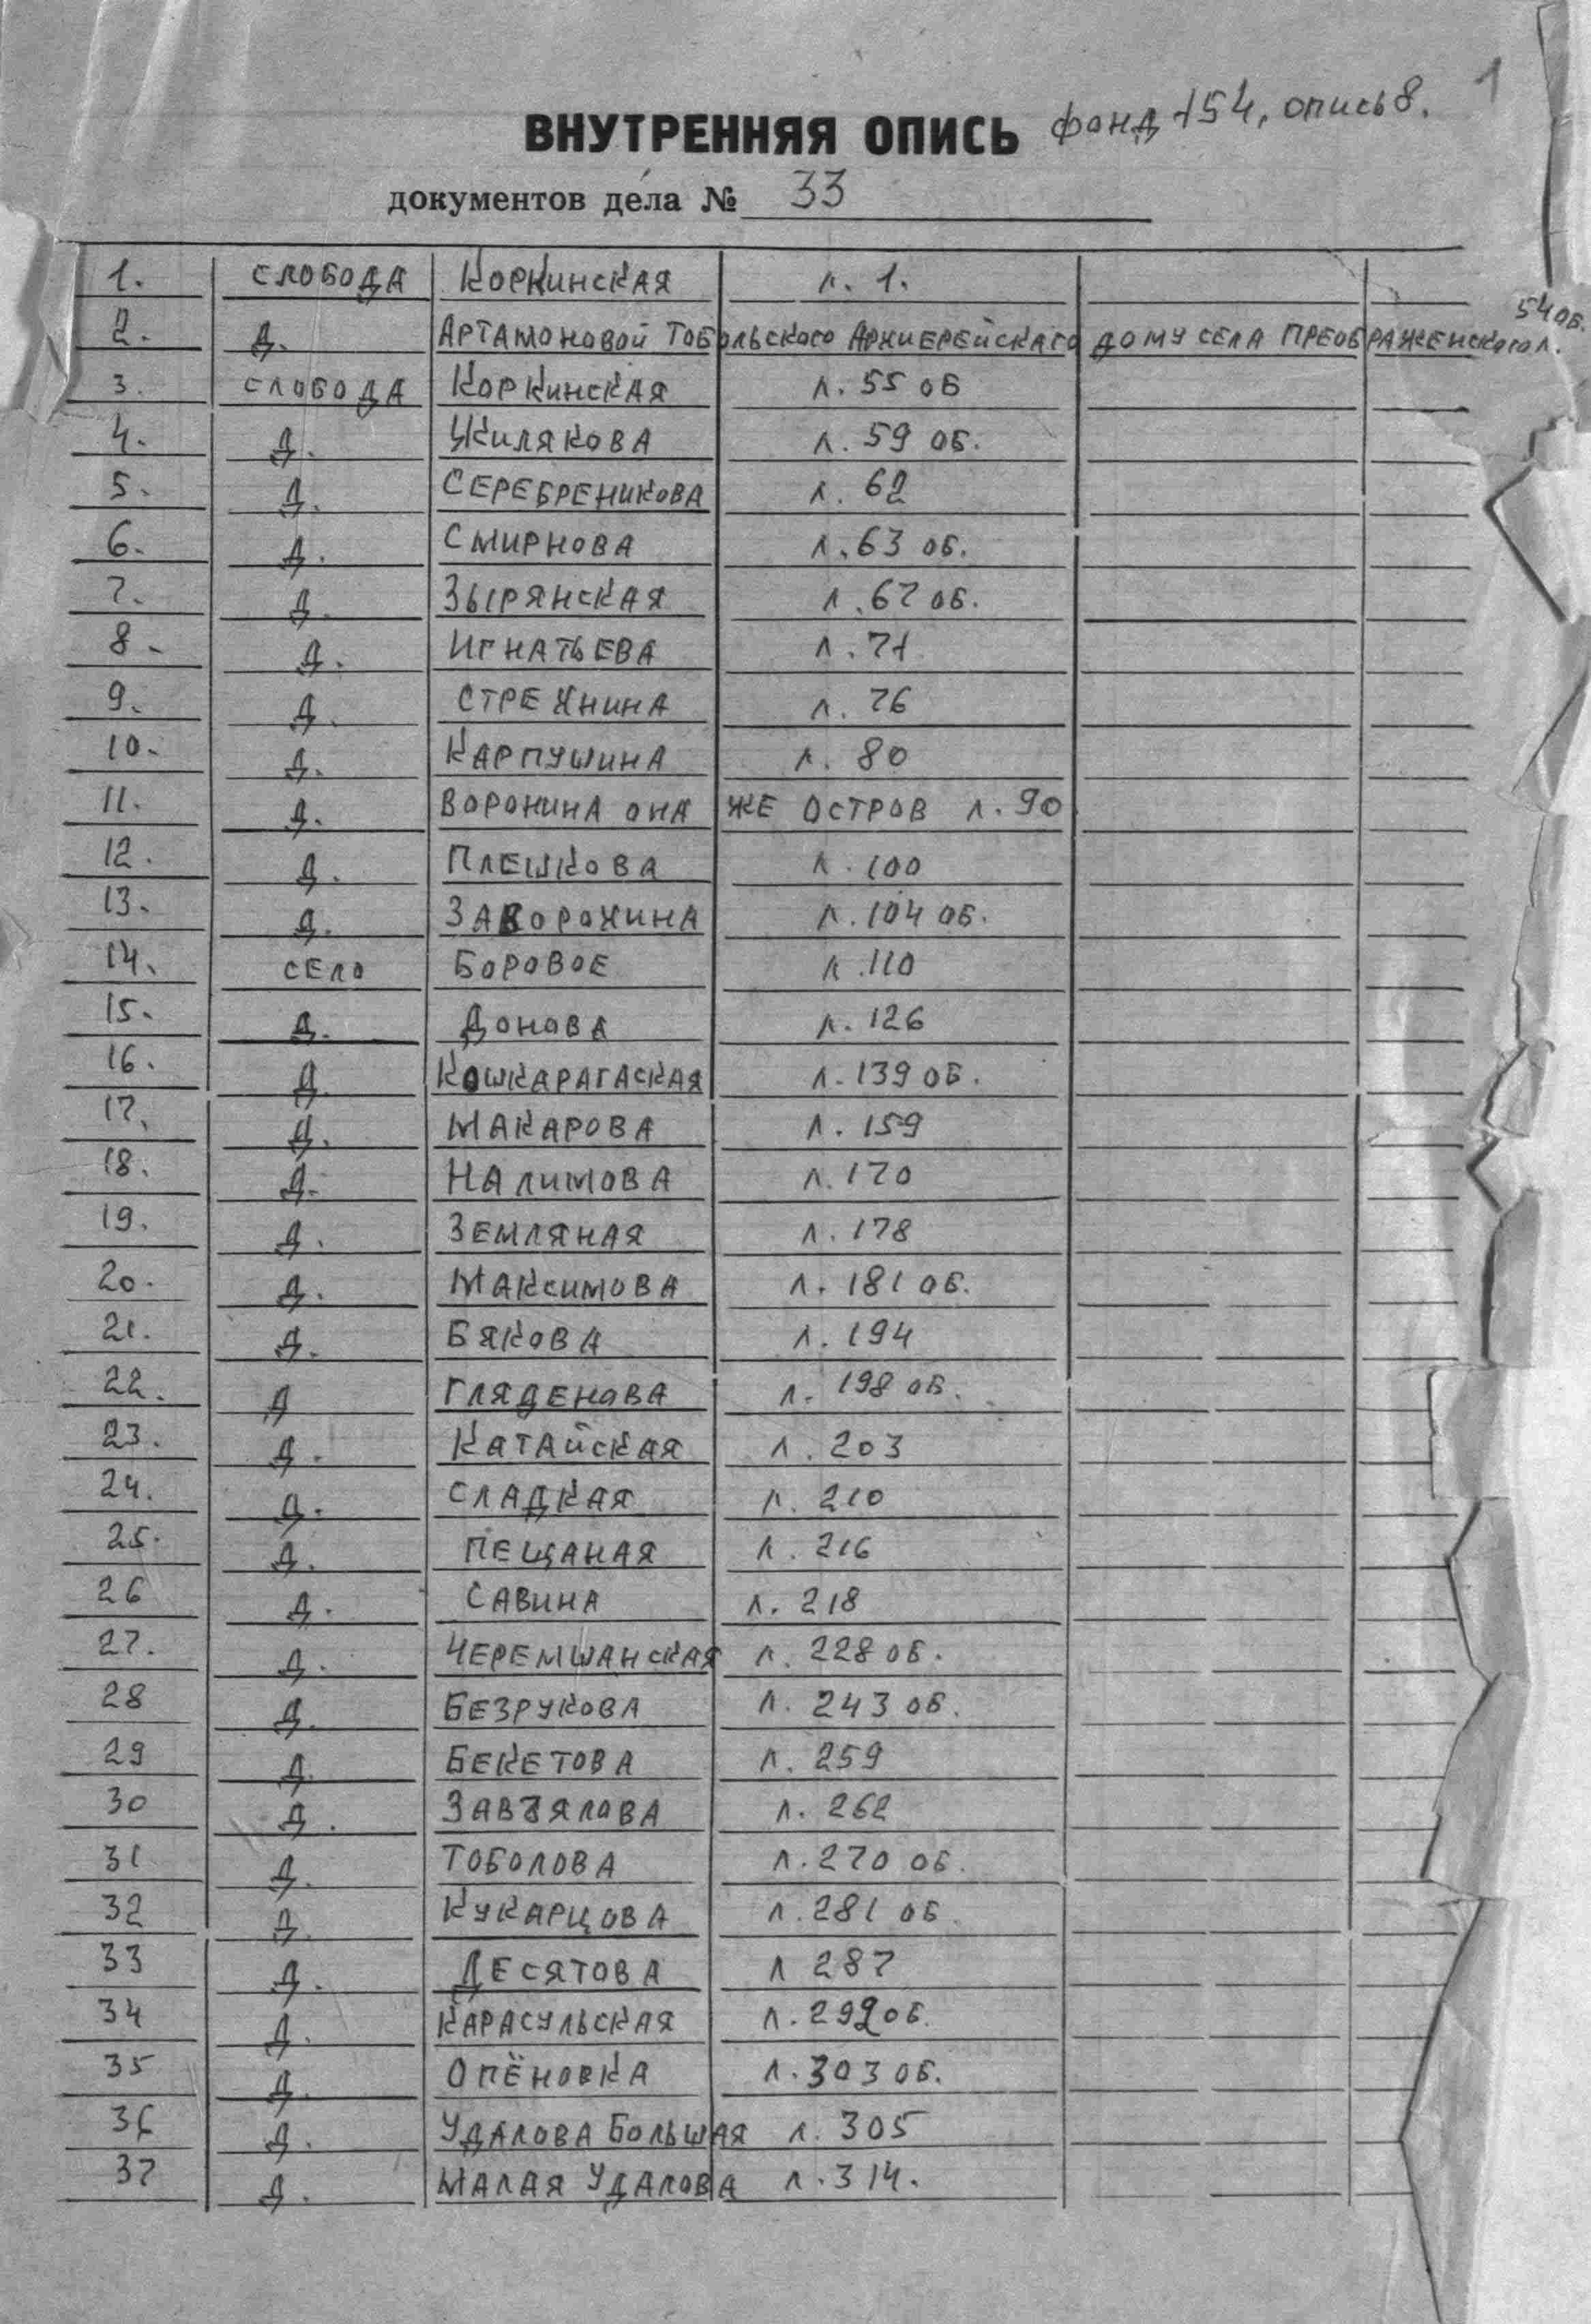 1
ВНУТРЕННЯЯ ОПИСЬ фонд 154, опись 8.
документов дела № 33
1. СЛОБОДА КОРКИНСКАЯ л. 1.
2. Д. АРТАМОНОВОЙ ТОБОЛЬСКОГО АРХИЕРЕЙСКАГО ДОМУ СЕЛА ПРЕОБРАЖЕНСКОГО л. 54 ОБ.
3. СЛОБОДА КОРКИНСКАЯ л. 55 ОБ
4. Д. ЖИЛЯКОВА л. 59 ОБ.
5. Д. СЕРЕБРЕНИКОВА л. 62
6. Д. СМИРНОВА л. 63 ОБ.
7. Д. ЗЫРЯНСКАЯ л. 67 ОБ.
8. Д. ИГНАТЬЕВА л. 71
9. Д. СТРЕХНИНА л. 76
10. Д. КАРПУШИНА л. 80
11. Д. ВОРОНИНА ОНА ЖЕ ОСТРОВ л. 90
12. Д. ПЛЕШКОВА л. 100
13. Д. ЗАВОРОХИНА л. 104 ОБ.
14. СЕЛО БОРОВОЕ л. 110
15. Д. ДОНОВА л. 126
16. Д. КОШКАРАГАСКАЯ л. 139 ОБ.
17. Д. МАКАРОВА л. 159
18. Д. НАЛИМОВА л. 170
19. Д. ЗЕМЛЯНАЯ л. 178
20. Д. МАКСИМОВА л. 181 ОБ.
21. Д. БЯКОВА л. 194
22. Д ГЛЯДЕНОВА л. 198 ОБ.
23. Д. КАТАЙСКАЯ л. 203
24. Д. СЛАДКАЯ л. 210
25. Д. ПЕЩАНАЯ л. 216
26 Д. САВИНА л. 218
27. Д. ЧЕРЕМШАНСКАЯ л. 228 ОБ.
28 Д. БЕЗРУКОВА л. 243 ОБ.
29 Д. БЕКЕТОВА л. 259
30 Д. ЗАВЪЯЛОВА л. 262
31 Д. ТОБОЛОВА л. 270 ОБ.
32 Д. КУКАРЦОВА л. 281 ОБ.
33 Д. ДЕСЯТОВА л 287
34 Д. КАРАСУЛЬСКАЯ л. 292 ОБ.
35 Д. ОПЁНОВКА л. 303 ОБ.
36 Д. УДАЛОВА БОЛЬШАЯ л. 305
37 Д. МАЛАЯ УДАЛОВА л. 314.